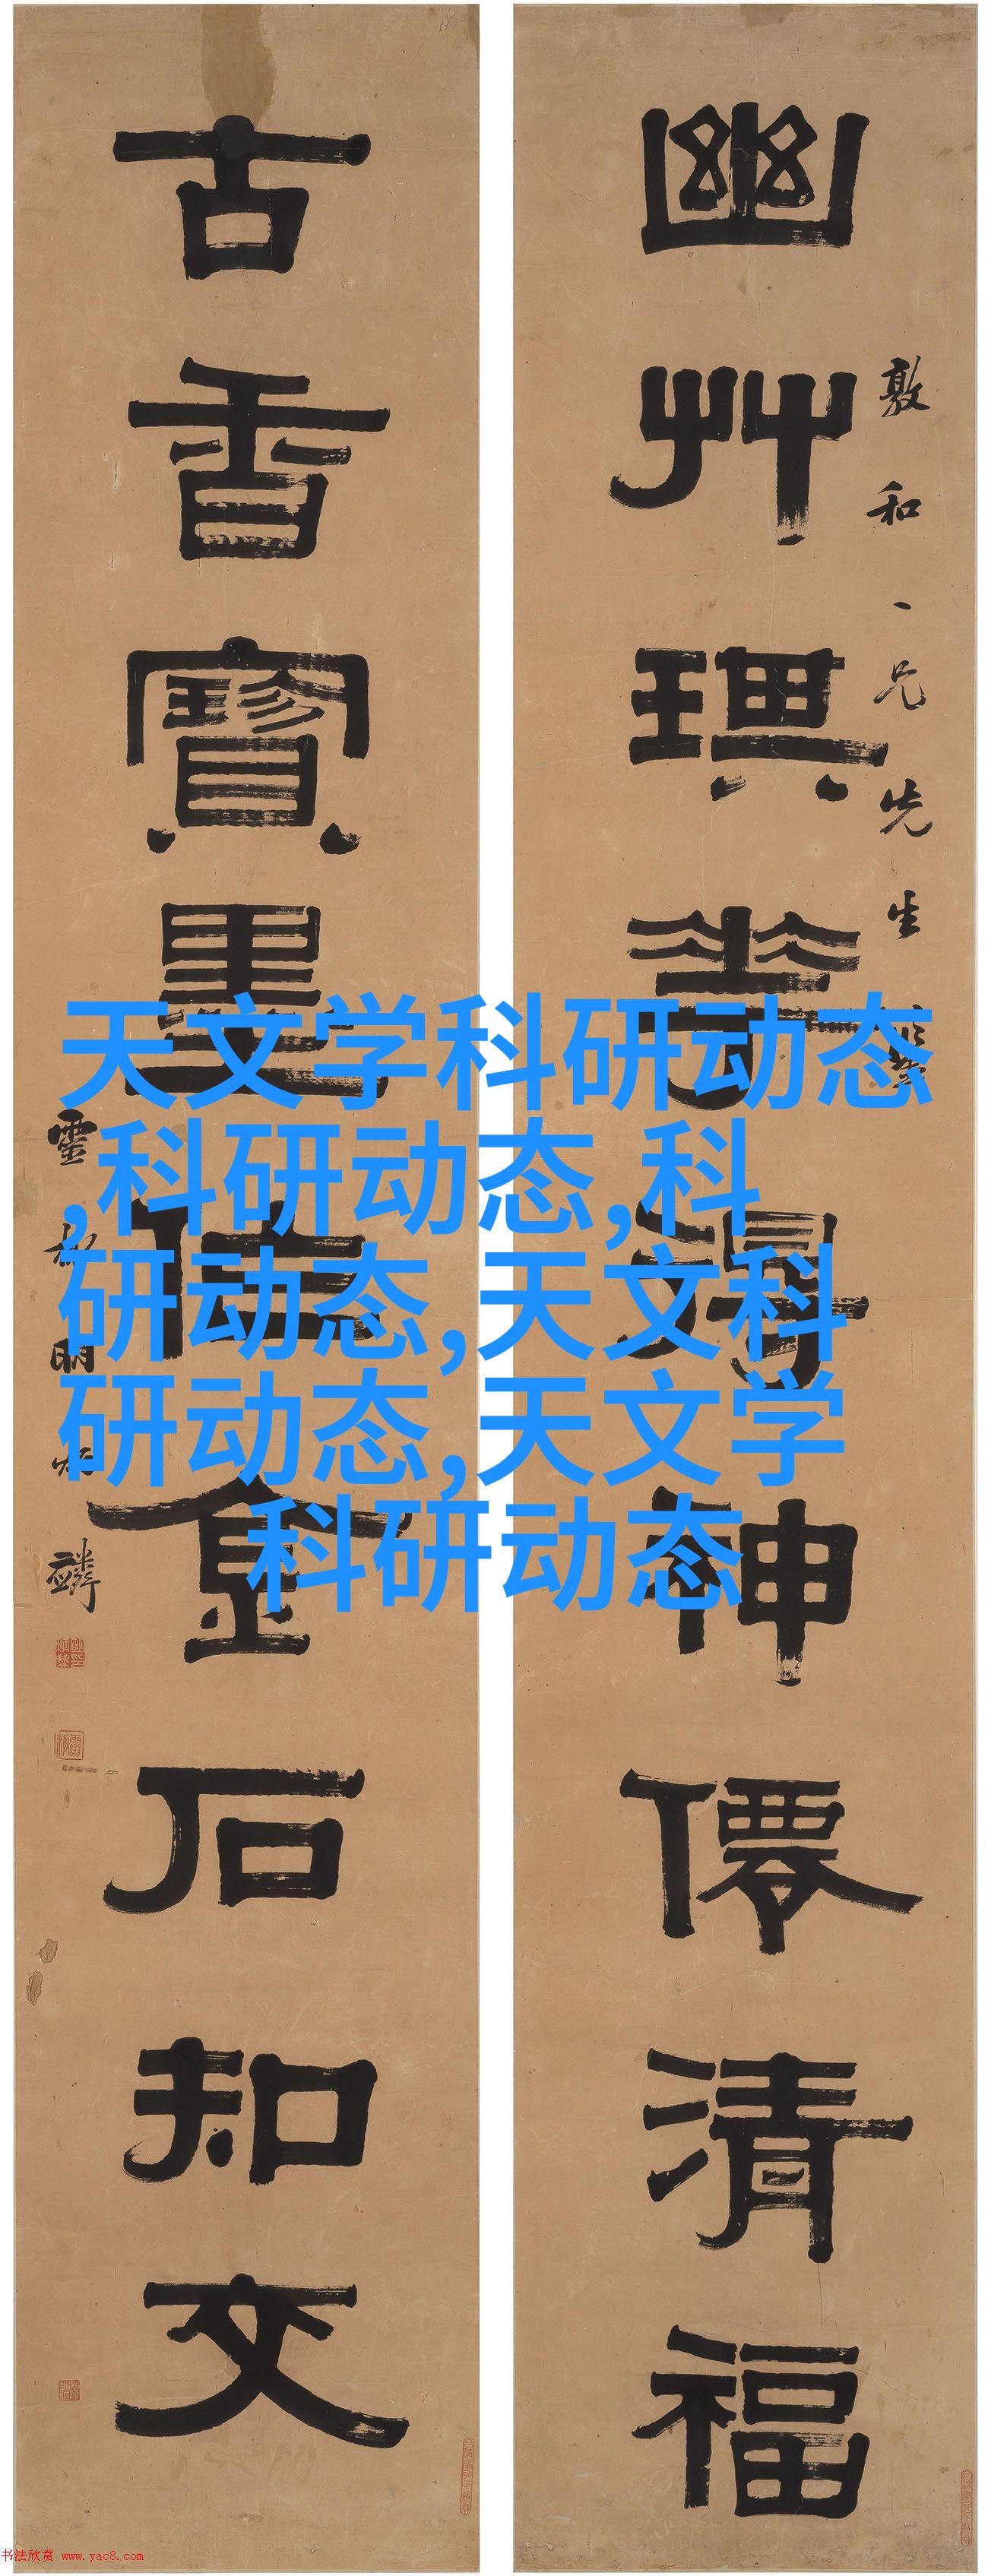 幽艸琪華得神僊清福
敦和一兄先生
古香寶墨佳金石知文
靈
明
天文学科研动态
,科研动态,科
研动态,天文科
研动态,天文学
科研动态
书法欣赏 www.yac8.com